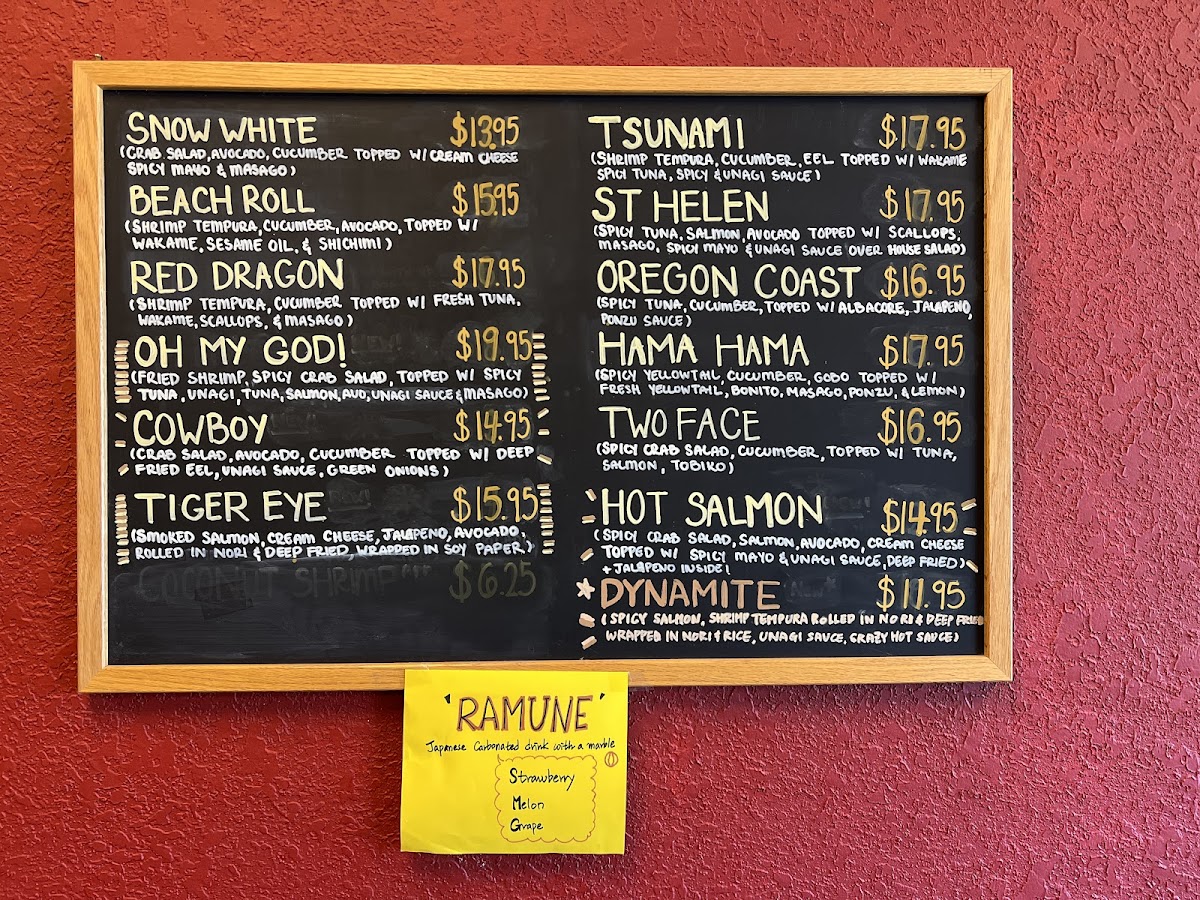 SNOW WHITE $13.95
(CRAB SALAD, AVOCADO, CUCUMBER TOPPED W/ CREAM CHEESE
SPICY MAYO & MASAGO)
BEACH ROLL $15.95
(SHRIMP TEMPURA, CUCUMBER, AVOCADO, TOPPED W/
WAKAME, SESAME OIL, & SHICHIMI)
RED DRAGON $17.95
(SHRIMP TEMPURA, CUCUMBER TOPPED W/ FRESH TUNA,
WAKAME, SCALLOPS, & MASAGO)
OH MY GOD! $19.95
(FRIED SHRIMP, SPICY CRAB SALAD, TOPPED W/ SPICY
TUNA, UNAGI, TUNA, SALMON, AVO, UNAGI SAUCE & MASAGO)
COWBOY $14.95
(CRAB SALAD, AVOCADO, CUCUMBER TOPPED W/ DEEP
FRIED EEL, UNAGI SAUCE, GREEN ONIONS)
TIGER EYE $15.95
(SMOKED SALMON, CREAM CHEESE, JALAPENO, AVOCADO,
ROLLED IN NORI & DEEP FRIED, WRAPPED IN SOY PAPER)
COCONUT SHRIMP $6.25
TSUNAMI $17.95
(SHRIMP TEMPURA, CUCUMBER, EEL TOPPED W/ WAKAME
SPICY TUNA, SPICY & UNAGI SAUCE)
ST HELEN $17.95
(SPICY TUNA, SALMON, AVOCADO TOPPED W/ SCALLOPS,
MASAGO, SPICY MAYO & UNAGI SAUCE OVER HOUSE SALAD)
OREGON COAST $16.95
(SPICY TUNA, CUCUMBER, TOPPED W/ ALBACORE, JALAPENO,
PONZU SAUCE)
HAMA HAMA $17.95
(SPICY YELLOWTAIL, CUCUMBER, GOBO TOPPED W/
FRESH YELLOWTAIL, BONITO, MASAGO, PONZU, & LEMON)
TWO FACE $16.95
(SPICY CRAB SALAD, CUCUMBER, TOPPED W/ TUNA,
SALMON, TOBIKO)
HOT SALMON $14.95
(SPICY CRAB SALAD, SALMON, AVOCADO, CREAM CHEESE
TOPPED W/ SPICY MAYO & UNAGI SAUCE, DEEP FRIED)
+JALAPENO INSIDE!
DYNAMITE $11.95
(SPICY SALMON, SHRIMP TEMPURA ROLLED IN NORI & DEEP FRIED
WRAPPED IN NORI & RICE, UNAGI SAUCE, CRAZY HOT SAUCE)
'RAMUNE'
Japanese Carbonated drink with a marble
Strawberry
Melon
Grape